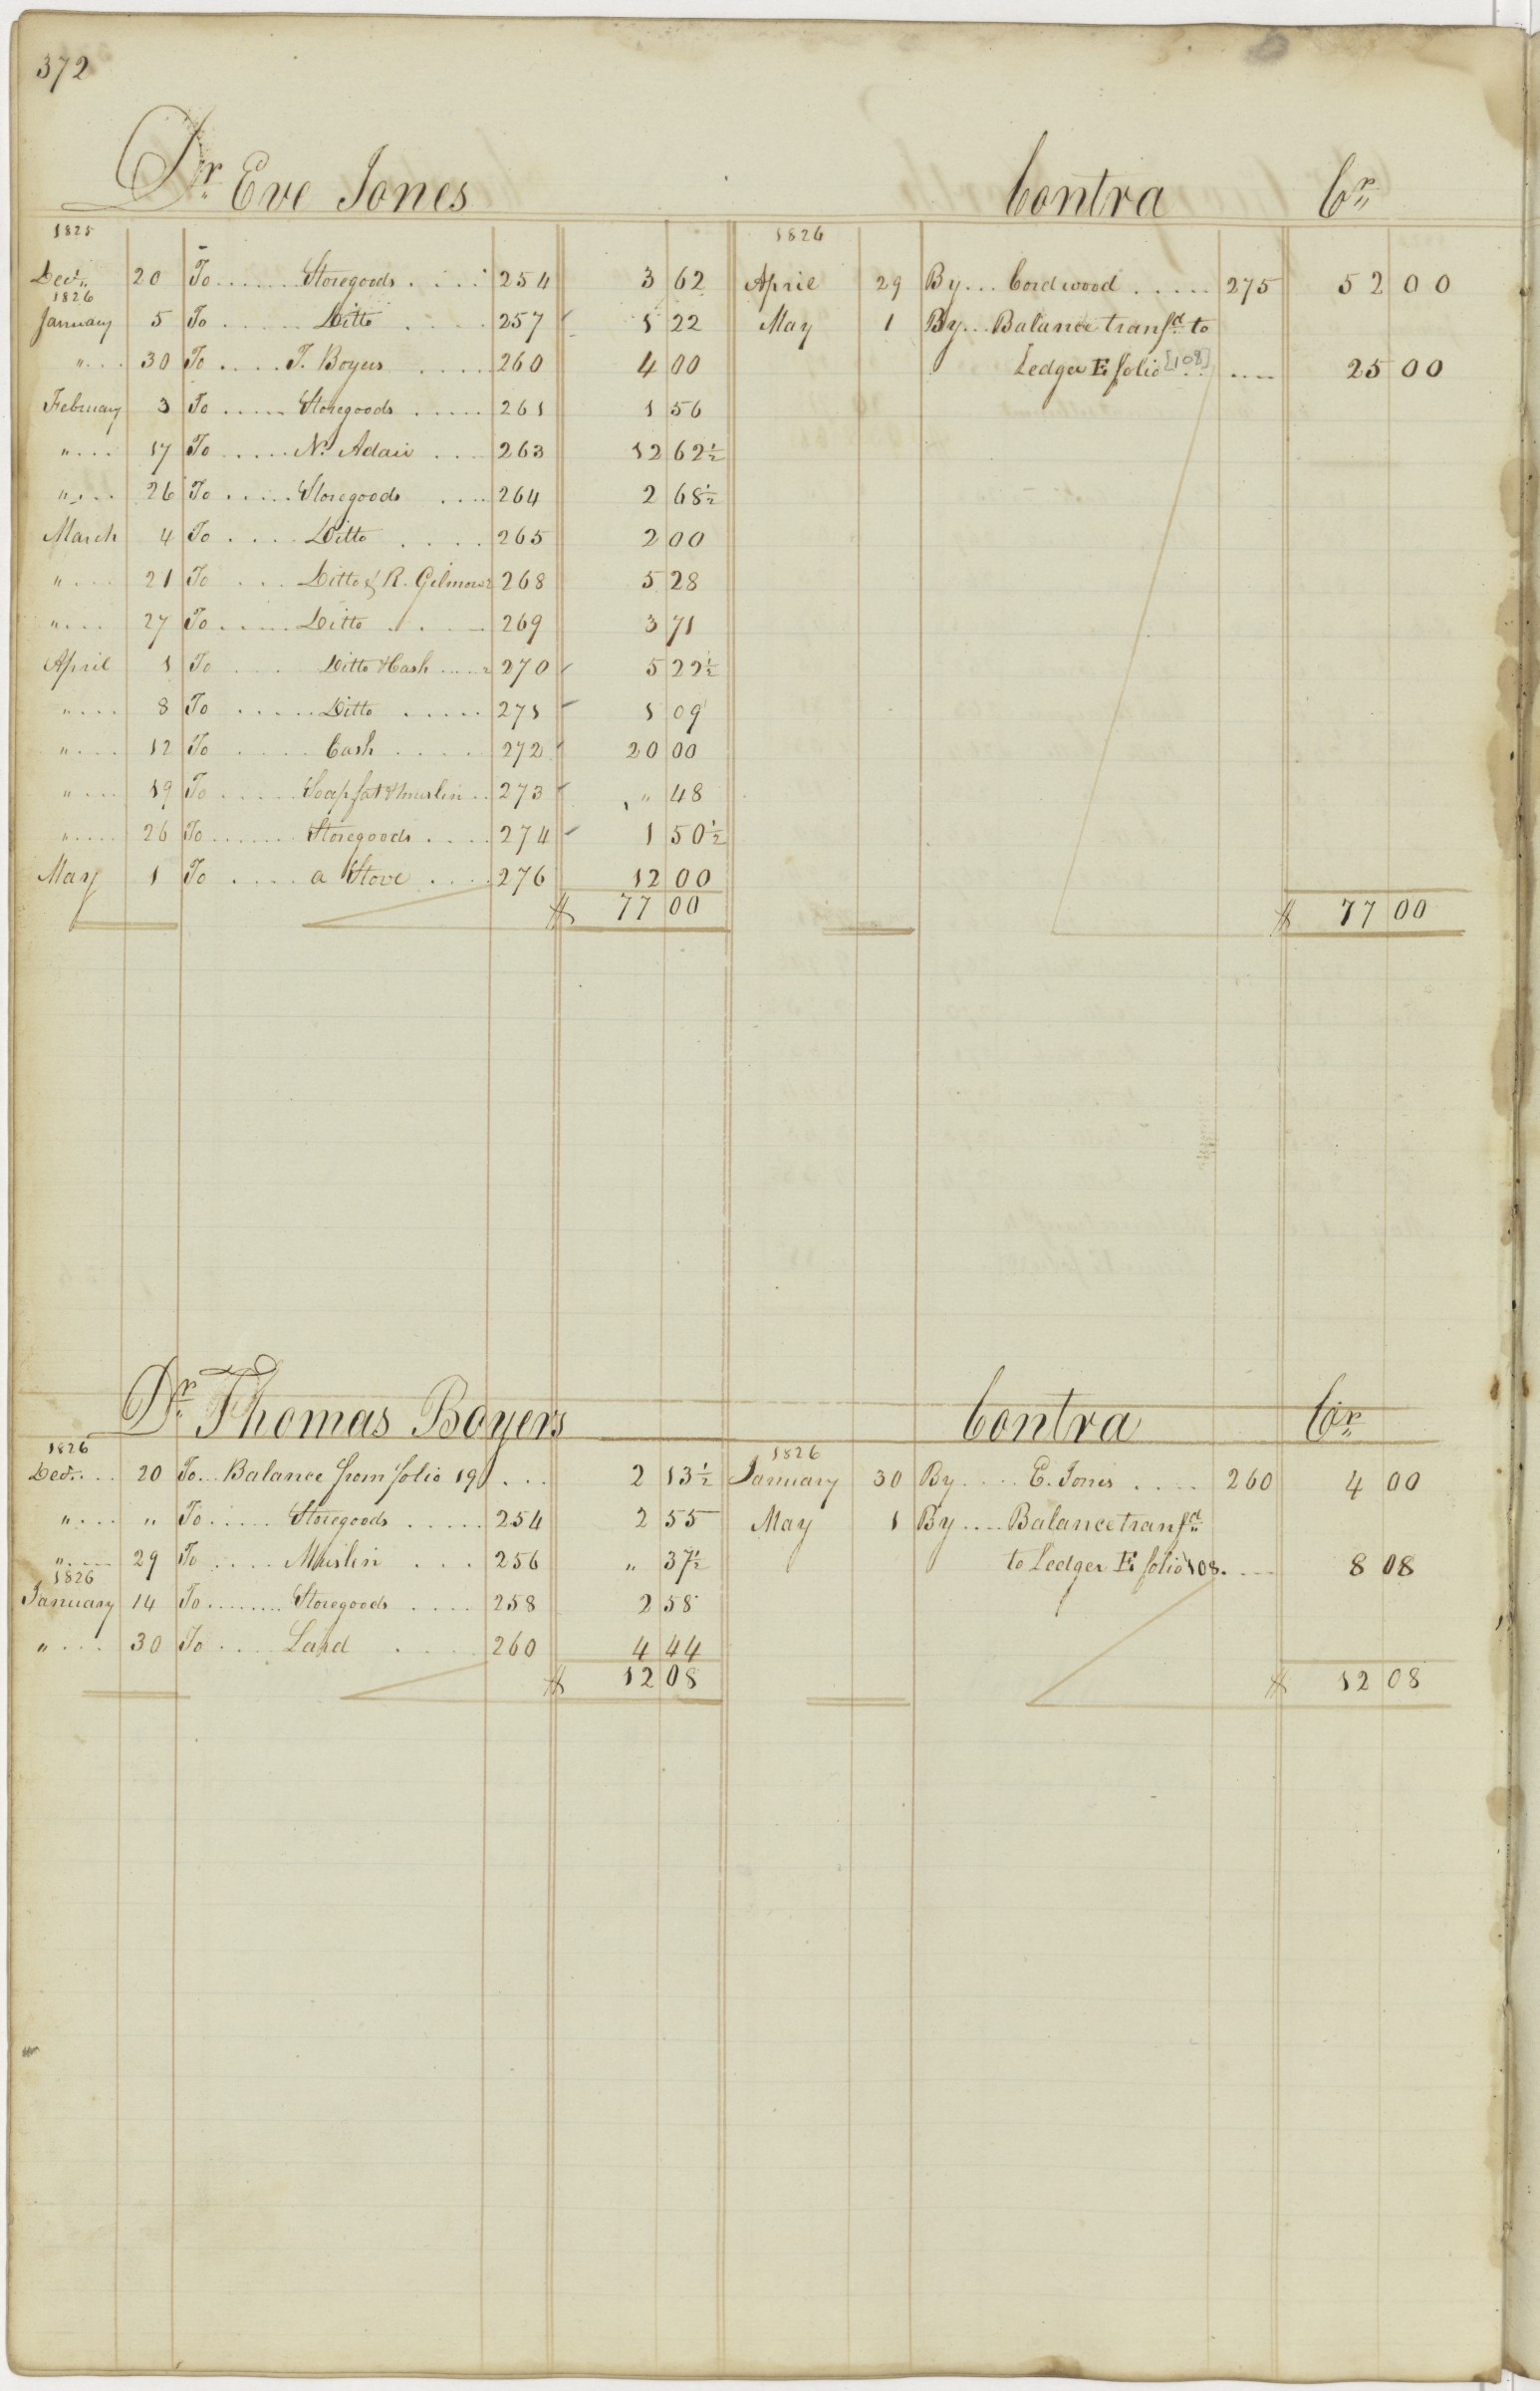 372
Dr. Eve Jones Contra Cr.
1825 1826
Decr. 20 To ...... Storegoods ..... 254 3 62 April 29 By ... Cordwood ..... 275 52 00
1826
January 5 To ..... Ditto .... 257 1 22 May 1 By ... Balance transfd. to
" ... 30 To .... T. Boyers .... 260 4 00 Ledger E folio [108] .... 25 00
February 3 To ..... Storegoods ..... 261 1 56
" ... 17 To ..... N. Adair ... 263 12 62½
" ... 26 To ..... Storegoods .... 264 2 68½
March 4 To .... Ditto .... 265 2 00
" ... 21 To ... Ditto & R. Gilmour 268 5 28
" ... 27 To ..... Ditto ... 269 3 71
April 1 To .... Ditto & Cash .... 270 5 22½
" ... 8 To ..... Ditto ..... 271 1 09
" ... 12 To .... Cash .... 272 20 00
" ... 19 To ..... Soap fat & muslin .. 273 " 48
" .... 26 To ....... Storegoods .... 274 1 50½
May 1 To .... a Stove .... 276 12 00
$ 77 00 $ 77 00
Dr. Thomas Boyers Contra Cr.
1826 1826
Decr. .. 20 To ... Balance from folio 190 ... 2 13½ January 30 By .... E. Jones .... 260 4 00
" ... " To ..... Storegoods ..... 254 2 55 May 1 By .... Balance transfd.
" .... 29 To .... Muslin ... 256 " 37½ to Ledger E folio 108. ... 8 08
1826
January 14 To ........ Storegoods .... 258 2 58
" ... 30 To .... Lard .... 260 4 44
$ 12 08 $ 12 08